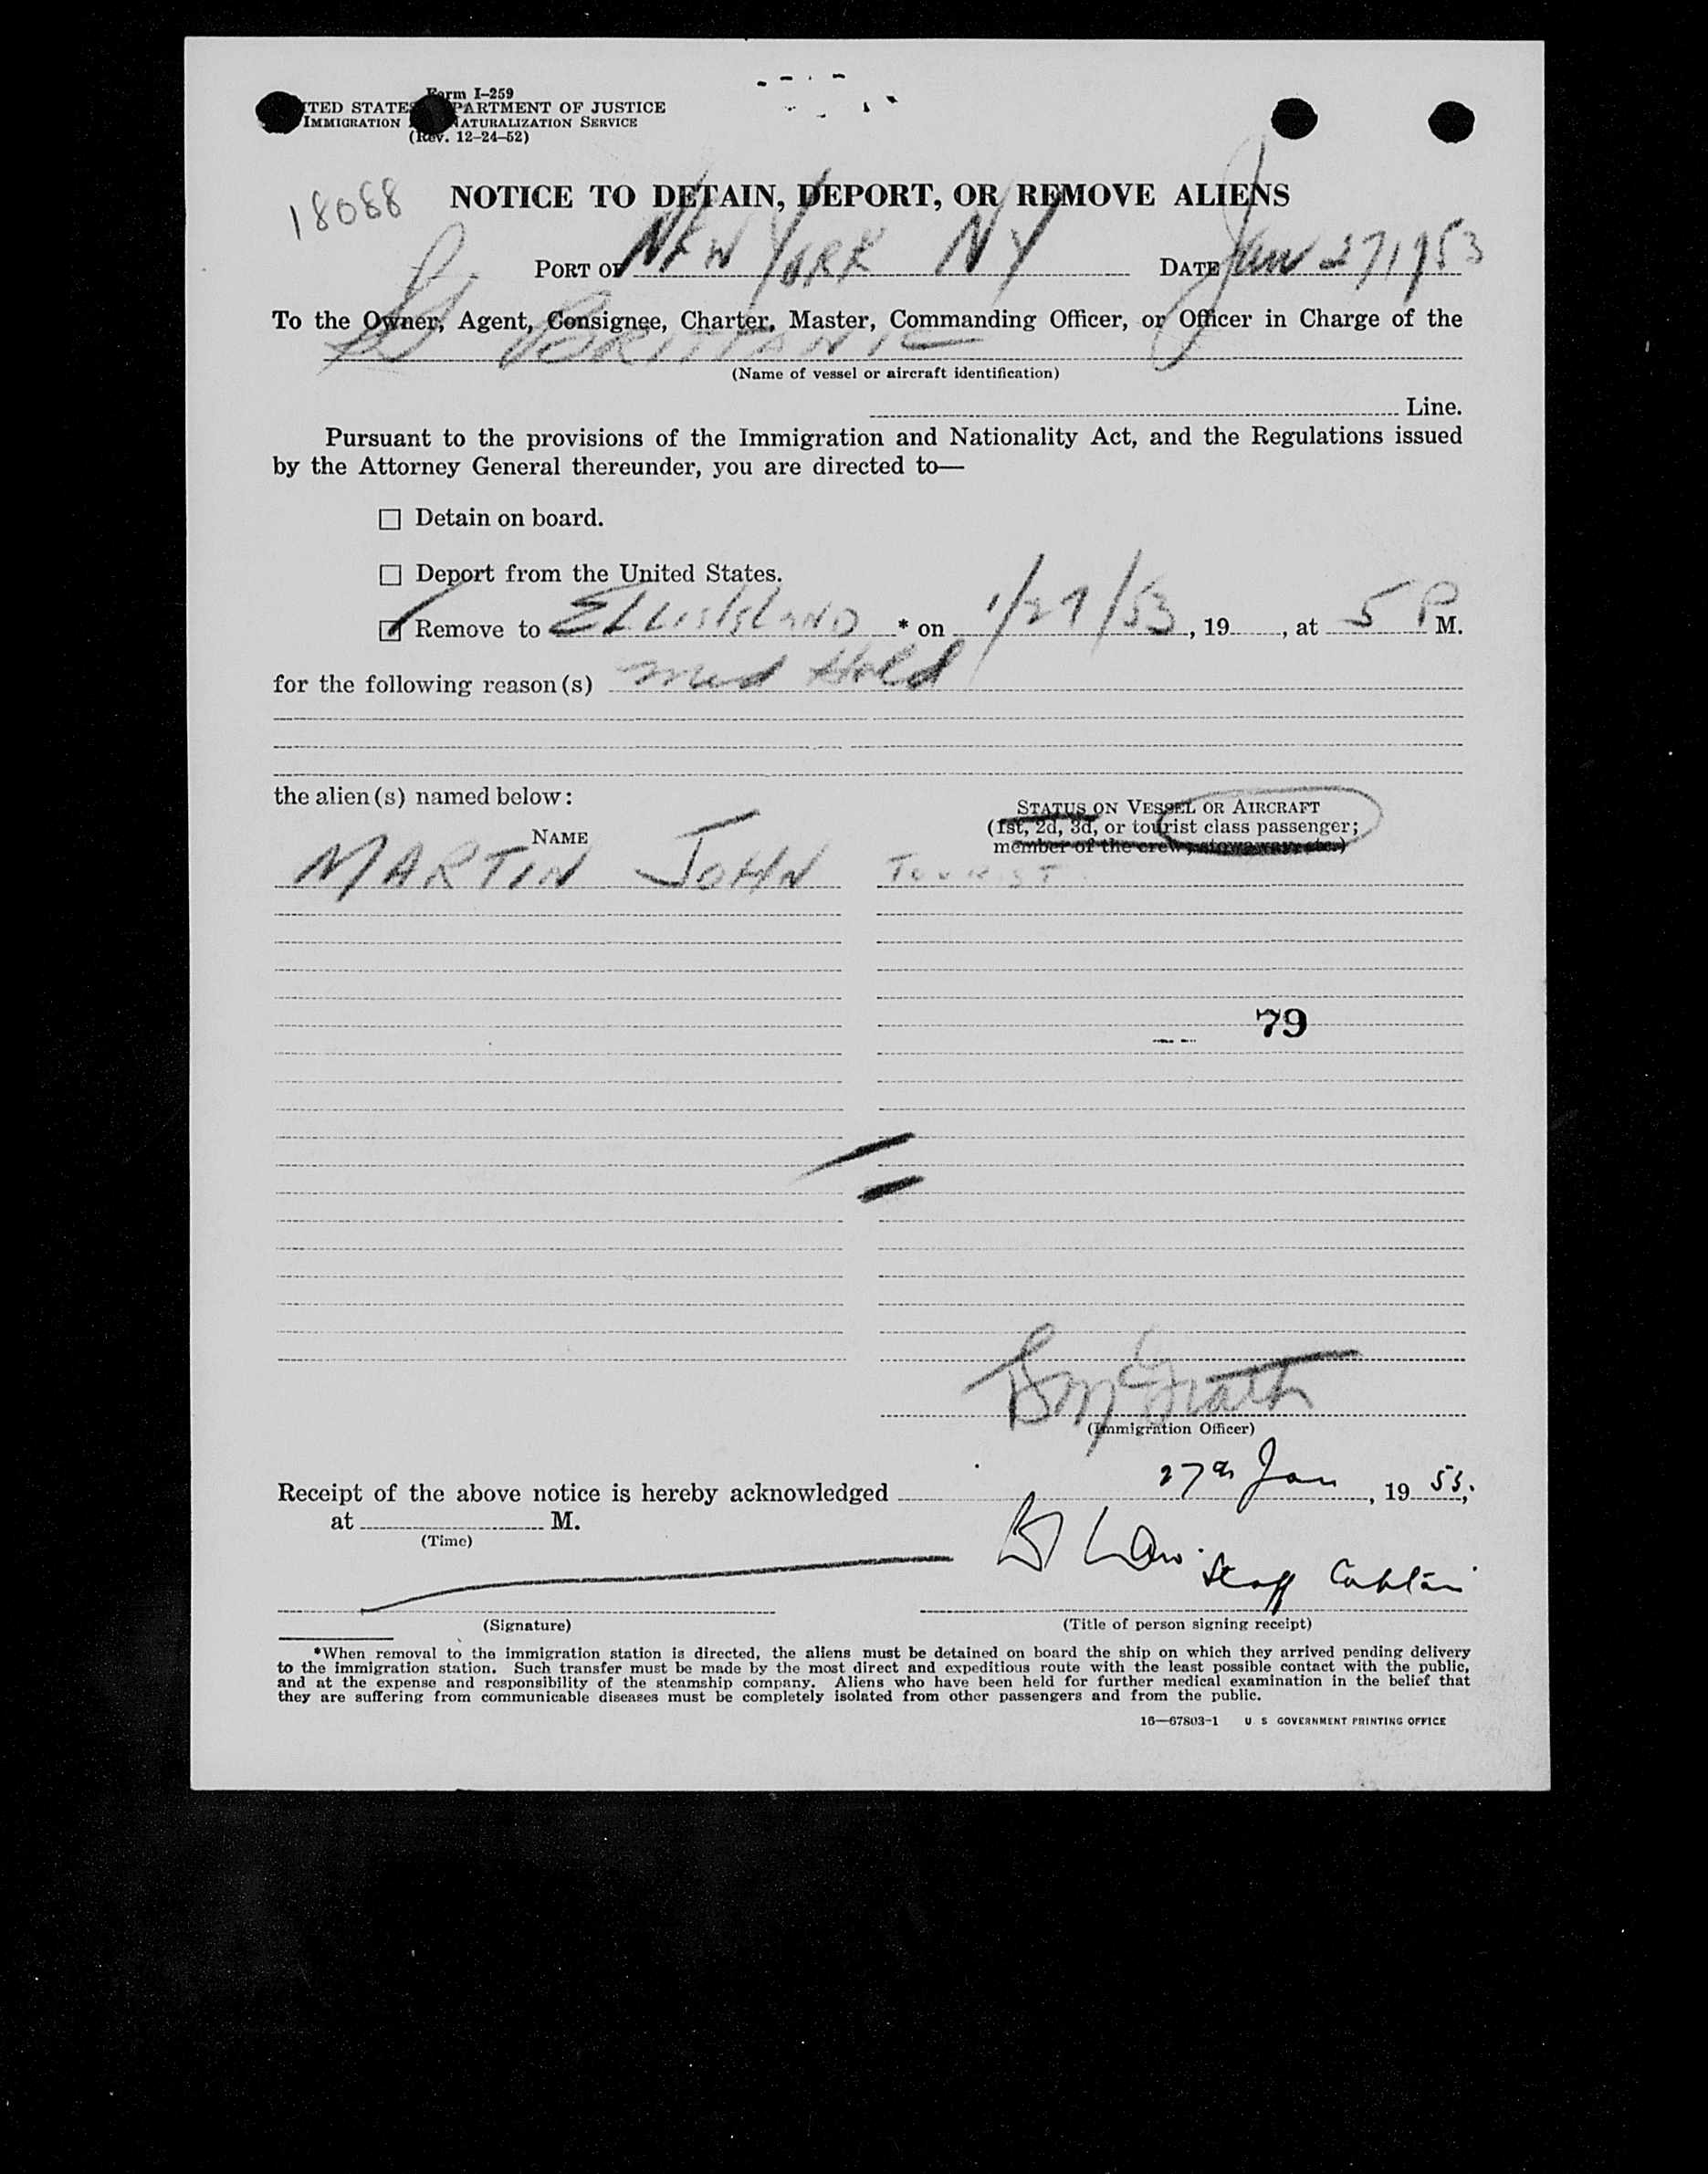 Form I-259
TED STATES PARTMENT OF JUSTICE
IMMIGRATION NATURALIZATION SERVICE
(Rev. 12-24-52)
18088
NOTICE TO DETAIN, DEPORT, OR REMOVE ALIENS
PORT OF NEW YORK NY DATE Jan 27 1953
To the Owner, Agent, Consignee, Charter, Master, Commanding Officer, or Officer in Charge of the
BRITTANIC
(Name of vessel or aircraft identification)
Line.
Pursuant to the provisions of the Immigration and Nationality Act, and the Regulations issued
by the Attorney General thereunder, you are directed to—
☐ Detain on board.
☐ Deport from the United States.
☑ Remove to ELLIS ISLAND * on 1/27/53, 19, at 5 P M.
for the following reason(s) Med Hold
the alien(s) named below:
STATUS ON VESSEL OR AIRCRAFT
(1st, 2d, 3d, or tourist class passenger;
member of the crew, stowaway, etc.)
NAME
MARTIN JOHN TOURIST
79
McGrath
(Immigration Officer)
Receipt of the above notice is hereby acknowledged 27th Jan, 19 53,
at M.
(Time)
Law. Staff Captain
(Signature) (Title of person signing receipt)
*When removal to the immigration station is directed, the aliens must be detained on board the ship on which they arrived pending delivery
to the immigration station. Such transfer must be made by the most direct and expeditious route with the least possible contact with the public,
and at the expense and responsibility of the steamship company. Aliens who have been held for further medical examination in the belief that
they are suffering from communicable diseases must be completely isolated from other passengers and from the public.
16—67803-1 U S GOVERNMENT PRINTING OFFICE